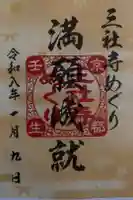 三社寺めぐり
満願成就
京都
壬生
令和八年一月九日